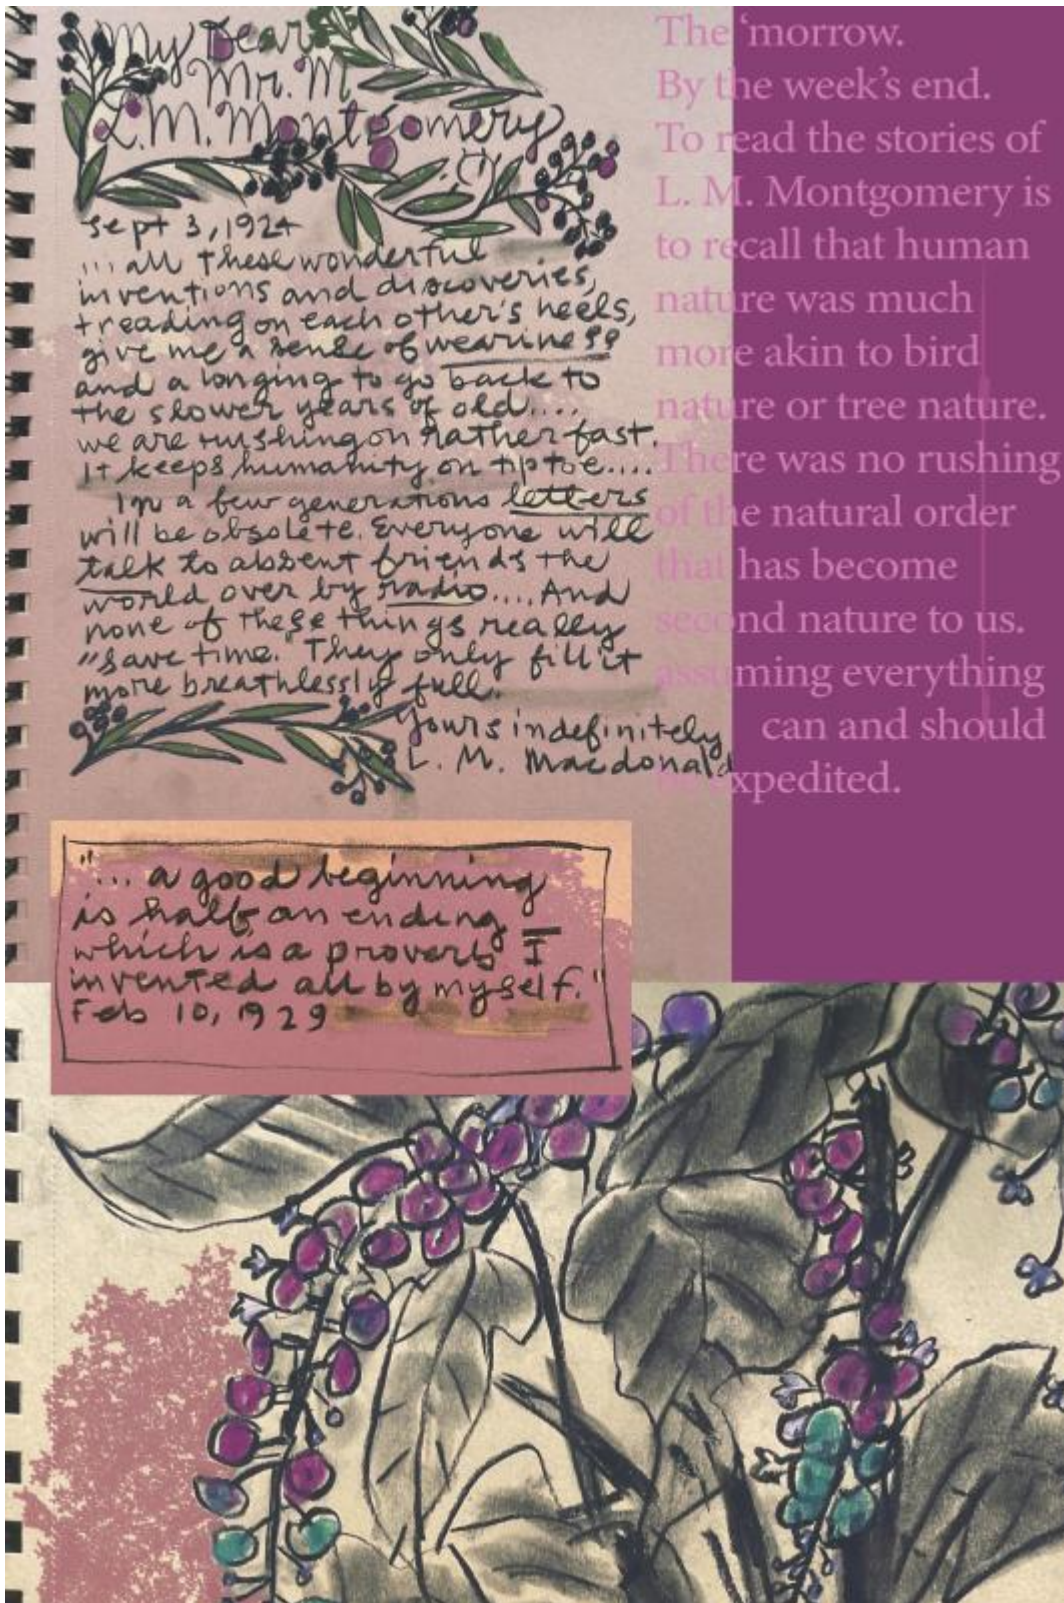 My Dear
Mr. M
L.M. Montgomery
Sept 3, 1924
... all these wonderful
inventions and discoveries,
treading on each other's heels,
give me a sense of weariness
and a longing to go back to
the slower years of old....
we are rushing on rather fast.
It keeps humanity on tiptoe....
In a few generations letters
will be obsolete. Everyone will
talk to absent friends the
world over by radio.... And
none of these things really
"save time." They only fill it
more breathlessly full.
Yours indefinitely
L. M. Macdonald
"... a good beginning
is half an ending
which is a proverb I
invented all by myself."
Feb 10, 1929
The ‘morrow.
By the week’s end.
To read the stories of
L. M. Montgomery is
to recall that human
nature was much
more akin to bird
nature or tree nature.
There was no rushing
of the natural order
that has become
second nature to us.
assuming everything
can and should
expedited.